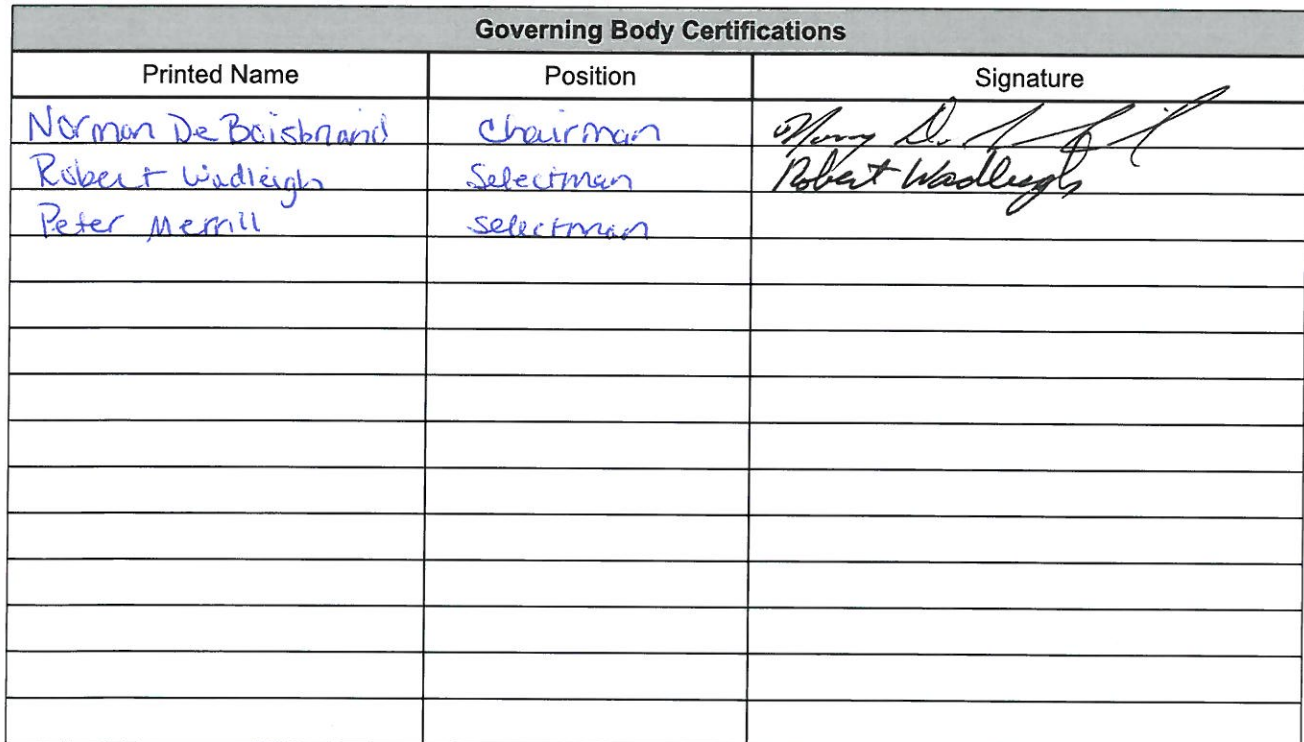 Governing Body Certifications
Printed Name Position Signature
Norman De Boisbriand Chairman
Robert Wadleigh Selectman Robert Wadleigh
Peter Merrill Selectman